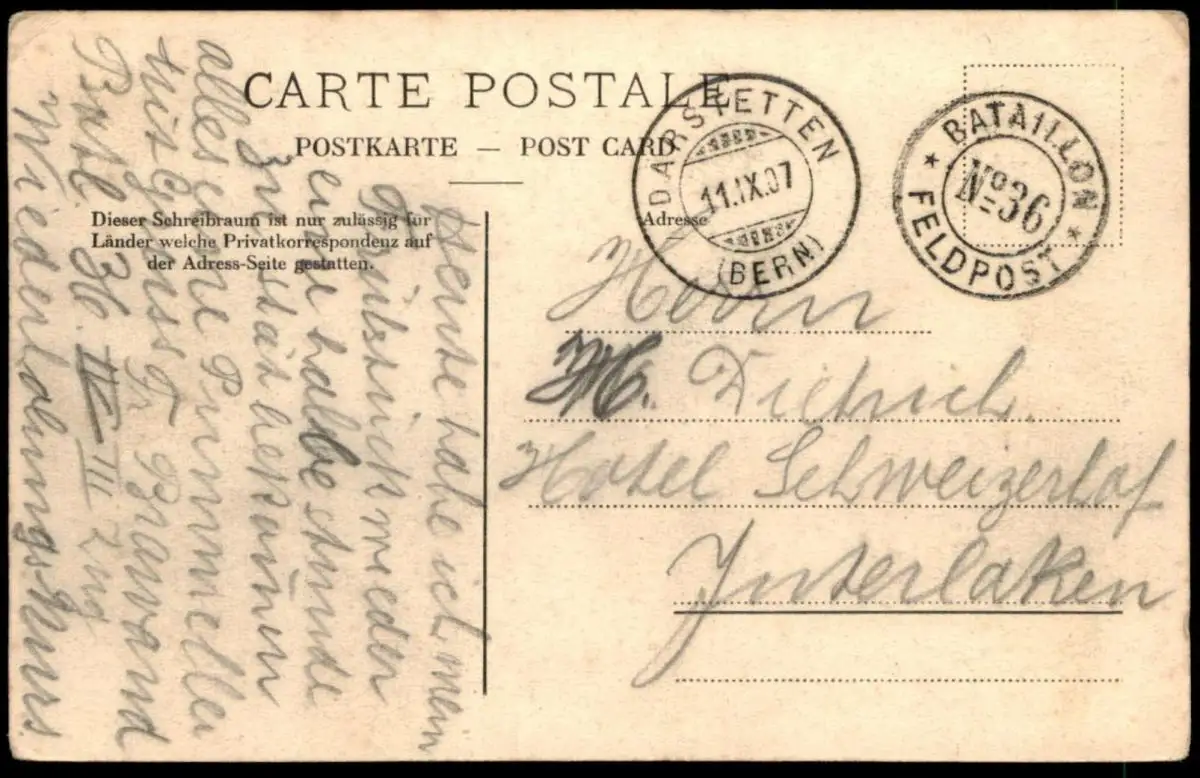 CARTE POSTALE
POSTKARTE — POST CARD
Dieser Schreibraum ist nur zulässig für
Länder welche Privatkorrespondenz auf
der Adress-Seite gestatten.
Adresse
DARSTETTEN
11.IX.07
(BERN)
BATAILLON
No 36
FELDPOST
Herrn
H. Dietrich
Hotel Schweizerhof
Interlaken
Heute habe ich mein
Frühstück wieder
eine halbe stunde
Zu spät bekommen
alles eine
mit Gruss Fr. Brawand
Batl 36 III Zug
Wiederholungskurs